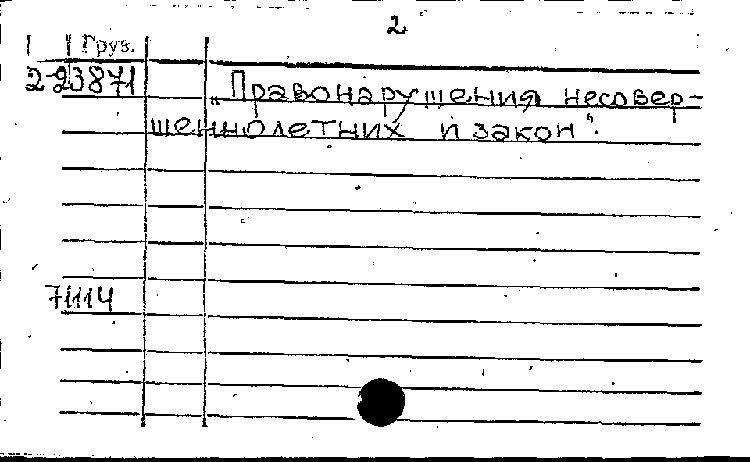 2
Груз.
2-23871
„Правонарушения несовер-
шеннолетних и закон".
71114